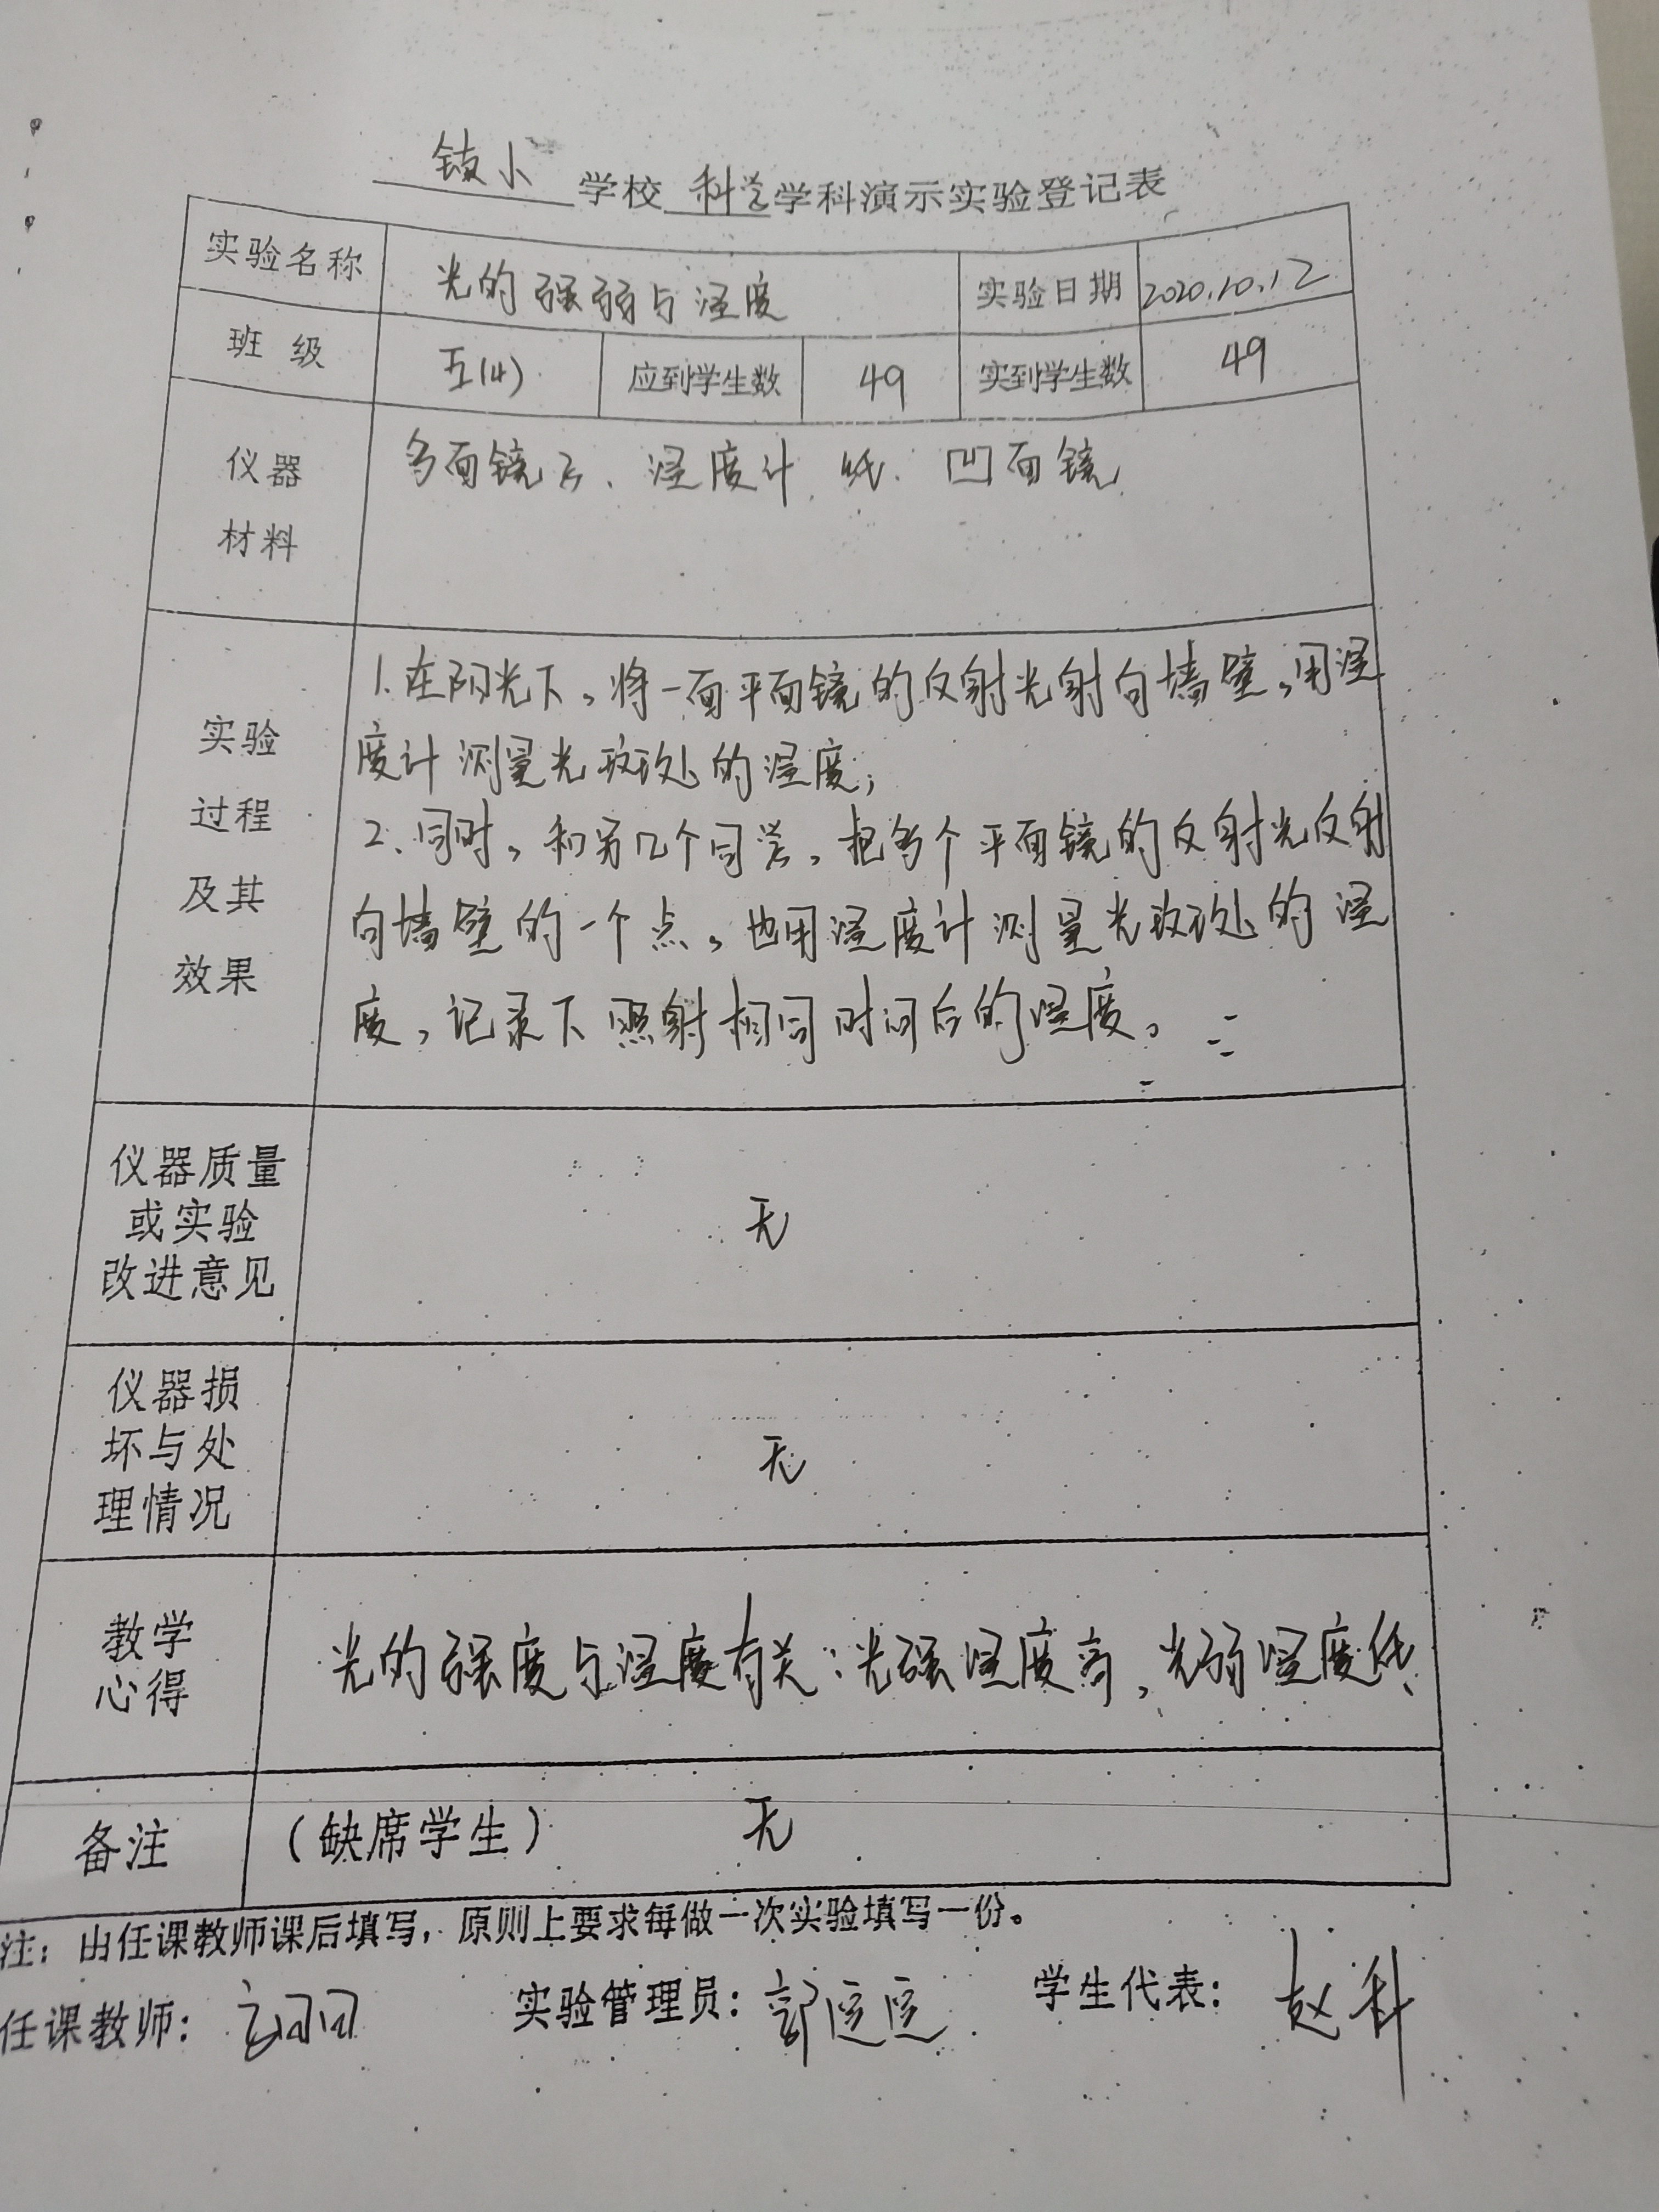 镇小 学校 科学 学科演示实验登记表
实验名称 光的强弱与温度 实验日期 2020.10.12
班 级 五(4) 应到学生数 49 实到学生数 49
仪器
材料
多面镜子、温度计、纸、凹面镜
实验
过程
及其
效果
1.在阳光下,将一面平面镜的反射光射向墙壁,用温
度计测量光斑处的温度;
2、同时,和另几个同学,把多个平面镜的反射光反射
向墙壁的一个点,也用温度计测量光斑处的温
度,记录下照射相同时间后的温度。
仪器质量
或实验
改进意见
无
仪器损
坏与处
理情况
无
教学
心得
光的强度与温度有关:光强温度高,光弱温度低、
备注 (缺席学生) 无
注:由任课教师课后填写,原则上要求每做一次实验填写一份。
任课教师: 实验管理员: 学生代表: 赵科